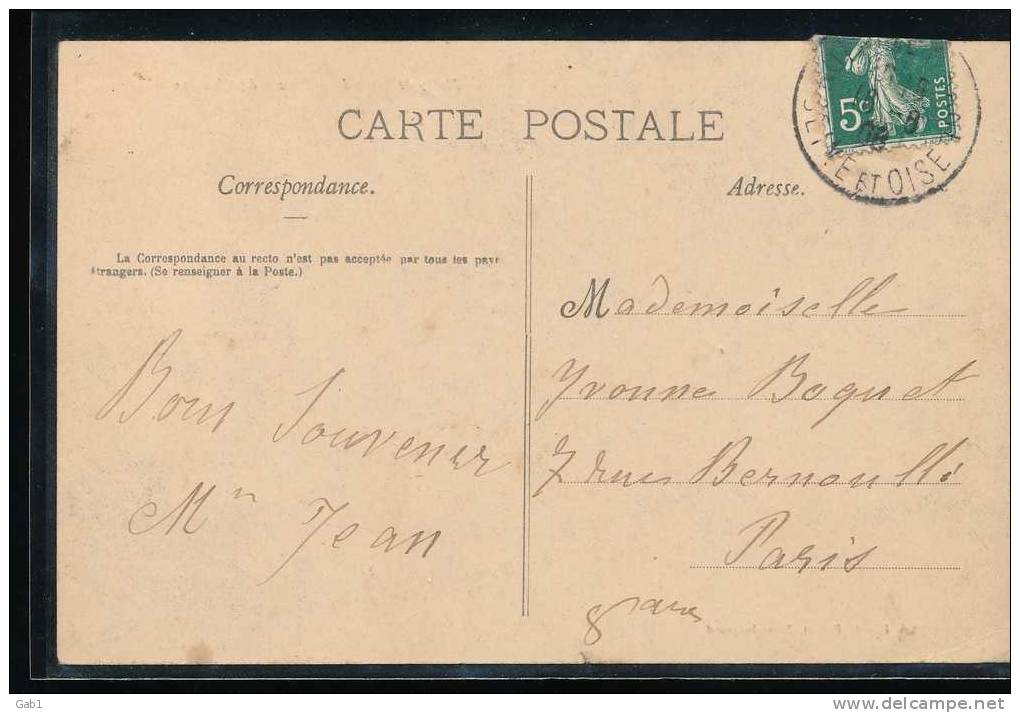 CARTE POSTALE
Correspondance.
La Correspondance au recto n'est pas acceptée par tous les pays
étrangers. (Se renseigner à la Poste.)
Bons Souvenir
Mn Jean
Adresse.
5c
POSTES
SEINE ET OISE
Mademoiselle
Yvonne Boquet
7 rue Bernoulli
Paris
8
Gab1
www.delcampe.net